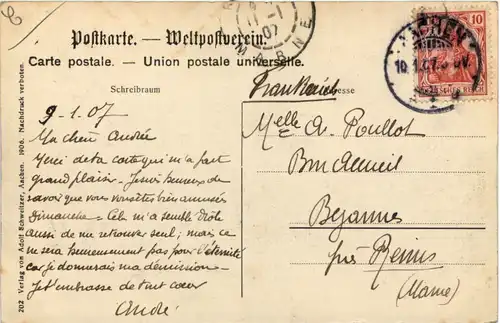 Postkarte. — Weltpostverein.
Carte postale. — Union postale universelle.
Schreibraum
Frankreich
9-1.07
Ma chère Andrée
Merci de ta carte qui m'a fait
grand plaisir - Je suis heureux de
savoir que vous vous êtes bien amusés
Dimanche - Cela m'a semblé drôle
aussi de me retrouver seul; mais ce
ne sera heureusement pas pour l'éternité
car je donnerais ma démission -
Je t'embrasse de tout cœur
André
Melle A. Poullot
Bezannes
près Reims
(Marne)
202 Verlag von Adolf Schweitzer, Aachen. 1906. Nachdruck verboten.
AACHEN
MARNE
10
DEUTSCHES REICH